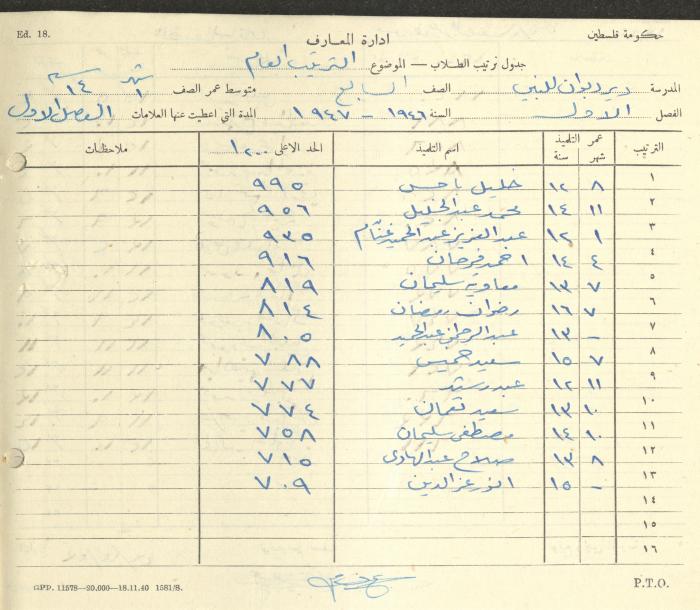 Ed. 18.
حكومة فلسطين
ادارة المعارف
جدول ترتيب الطلاب — الموضوع الترتيب العام
المدرسة دير ديوان للبنين الصف السابع متوسط عمر الصف شهر ١ سنه ١٤
الفصل الاول السنة ١٩٤٦ - ١٩٤٧ المدة التي اعطيت عنها العلامات الفصل الاول
الترتيب عمر التلميذ شهر سنة اسم التلميذ الحد الاعلى ١٢٠٠ ملاحظات
١ ٨ ١٢ خليل ٩٩٥
٢ ١١ ١٤ محمد عبد الجليل ٩٥٦
٣ ١ ١٢ عبد العزيز عبد الحميد غنّام ٩٣٥
٤ ٤ ١٤ احمد فرحان ٩١٦
٥ ٧ ١٣ معاوية سليمان ٨١٩
٦ ٧ ١٦ رضوان رمضان ٨١٤
٧ - ١٣ عبد الرحمن عبد الحميد ٨٠٥
٨ ٧ ١٥ سعيد خميس ٧٨٨
٩ ١١ ١٢ ٧٧٧
١٠ ١٠ ١٣ سعيد نعمان ٧٧٤
١١ ١٠ ١٤ مصطفى سليمان ٧٥٨
١٢ ٨ ١٣ صلاح عبد الهادي ٧١٥
١٣ - ١٥ انور عز الدين ٧٠٩
١٤
١٥
١٦
GPP. 11578—20.000—18.11.40 1581/8.
P.T.O.